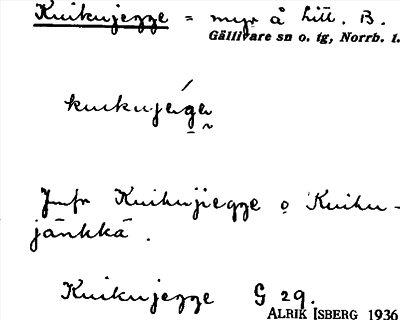 Kuikujegge = myr å litt. B.
Gällivare sn o. tg, Norrb. l.
kuikujega
Jmfr Kuikujiegge o Kuiku-
jänkkä.
Kuikujegge G 29.
ALRIK ISBERG 1936